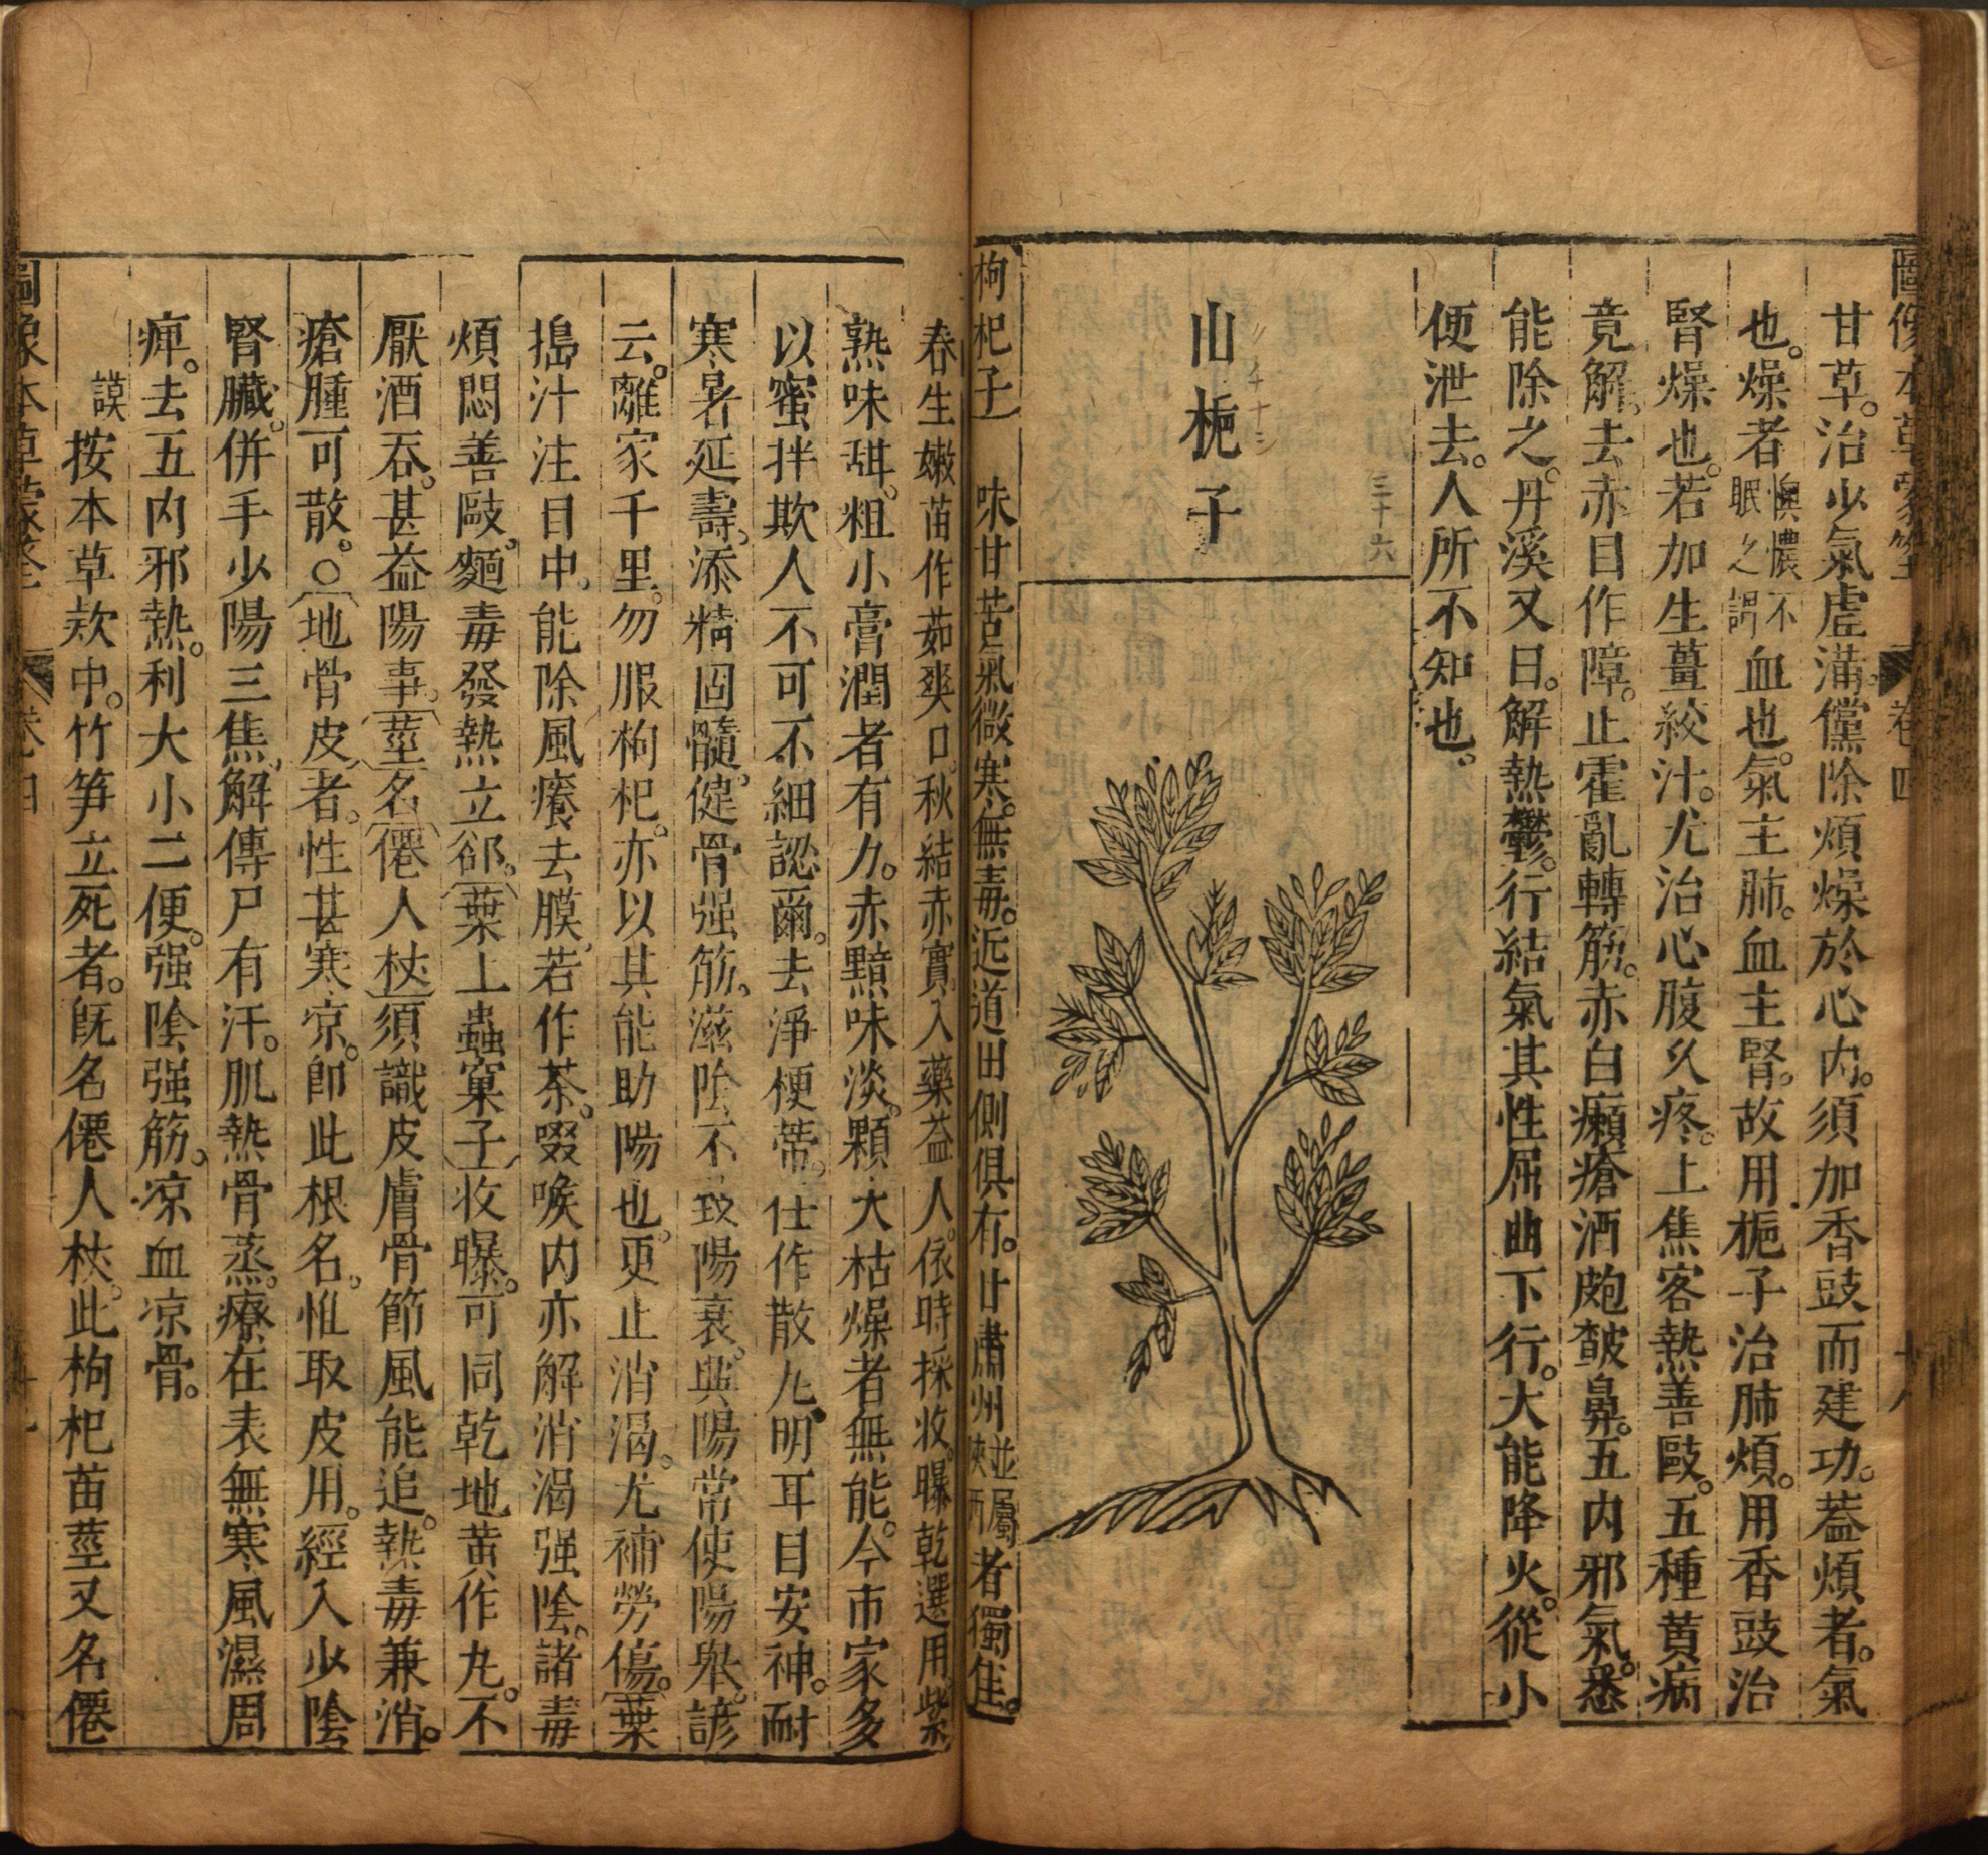 圖像本草蒙筌 卷四 十八
甘草。治少氣虛滿。儻除煩燥於心內。須加香豉而建功。蓋煩者。氣
也。燥者懊憹不眠之謂血也。氣主肺。血主腎。故用梔子治肺煩。用香豉治
腎燥也。若加生薑絞汁。尤治心腹久疼。上焦客熱善毆。五種黃病
竟解。去赤目作障。止霍亂轉筋。赤白癩瘡酒皰皶鼻。五內邪氣。悉
能除之。丹溪又曰。解熱鬱。行結氣其性屈曲下行。大能降火。從小
便泄去。人所不知也。
三十六
山梔子
枸杞子 味甘苦氣微寒。無毒。近道田側俱有。甘肅州並屬陝西者獨佳。
春生嫩苗作茹爽口。秋結赤實入藥益人。依時採收。曝乾選用。紫
熟味甜。粗小膏潤者有力。赤黯味淡。顆大枯燥者無能。今市家多
以蜜拌欺人不可不細認爾。去淨梗蒂。任作散丸。明耳目安神。耐
寒暑延壽。添精固髓。健骨强筋。滋陰不致陽衰。興陽常使陽舉。諺
云。離家千里。勿服枸杞。亦以其能助陽也。更止消渴。尤補勞傷。葉
搗汁注目中。能除風癢去膜。若作茶。啜喉內亦解消渴强陰。諸毒
煩悶善毆。麵毒發熱立郤。葉上蟲窠子收曝。可同乾地黃作丸。不
厭酒吞。甚益陽事。莖名僊人杖須識皮膚骨節風能追。熱毒兼消。
瘡腫可散。○地骨皮者。性甚寒涼。即此根名。惟取皮用。經入少陰
腎臟。併手少陽三焦。解傳尸有汗。肌熱骨蒸。療在表無寒風濕周
痺。去五內邪熱。利大小二便。强陰强筋。凉血凉骨。
謨按本草款中。竹笋立死者。旣名僊人杖。此枸杞苗莖又名僊
圖像本草蒙筌 卷四